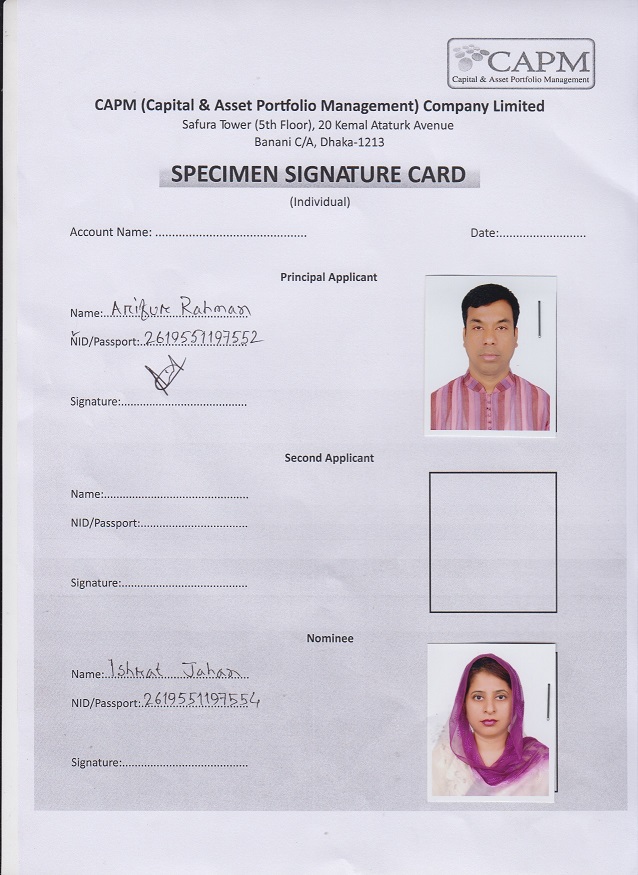 CAPM
Capital & Asset Portfolio Management
CAPM (Capital & Asset Portfolio Management) Company Limited
Safura Tower (5th Floor), 20 Kemal Ataturk Avenue
Banani C/A, Dhaka-1213
SPECIMEN SIGNATURE CARD
(Individual)
Account Name: ............................................ Date:.........................
Principal Applicant
Name: Arifur Rahman
NID/Passport: 2619551197552
Signature:.....................................
Second Applicant
Name:...........................................
NID/Passport:................................
Signature:.....................................
Nominee
Name: Ishrat Jahan
NID/Passport: 2619551197554
Signature:.....................................